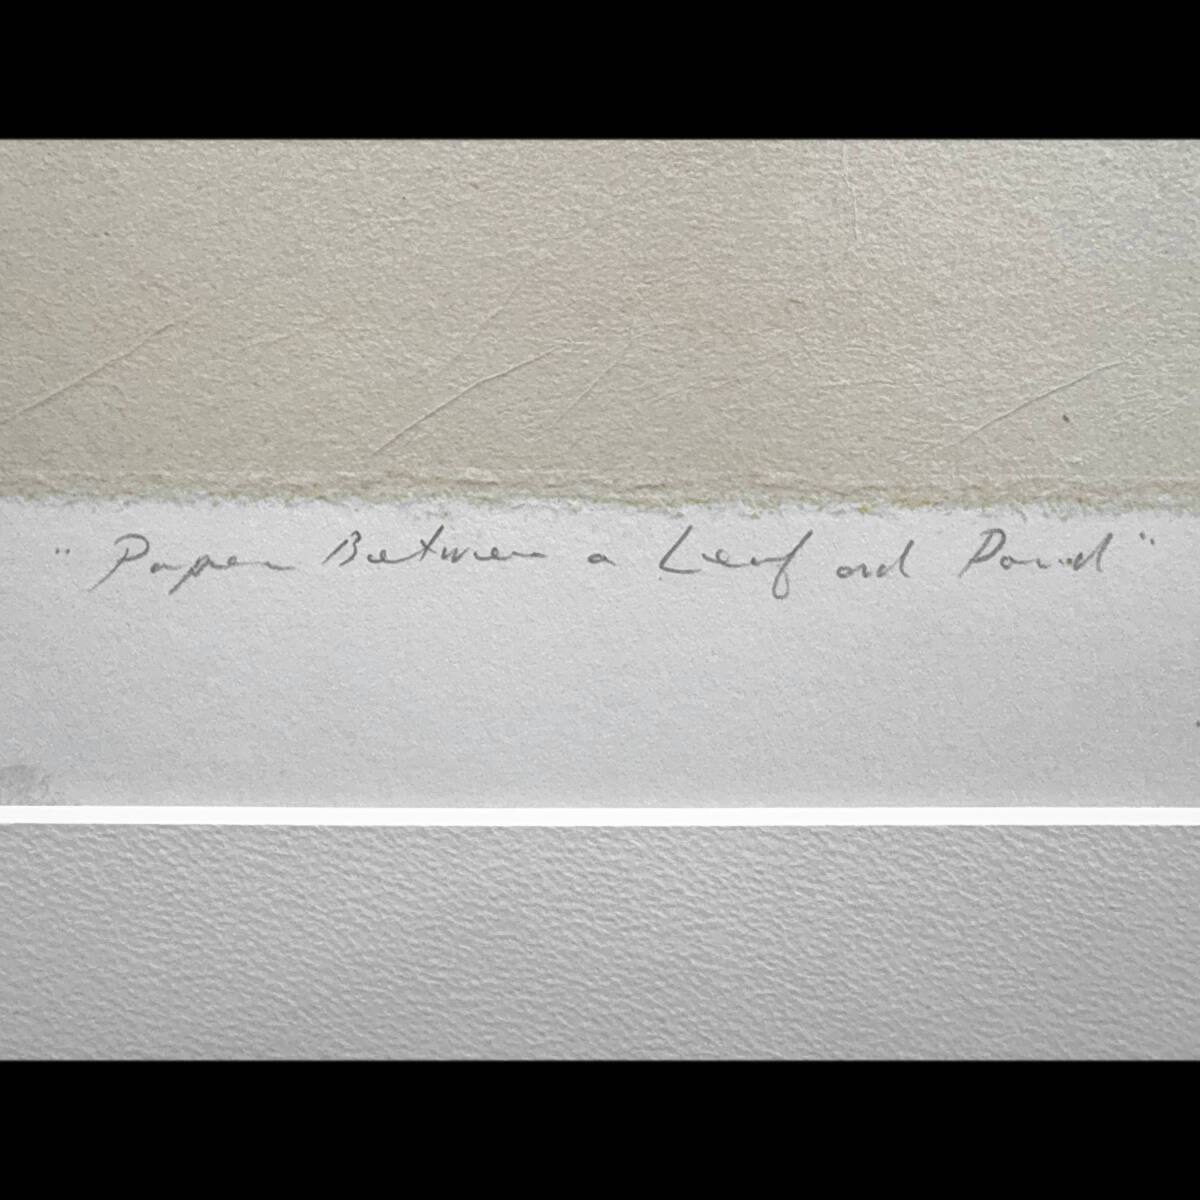 "Paper Between a Leaf and Pond"